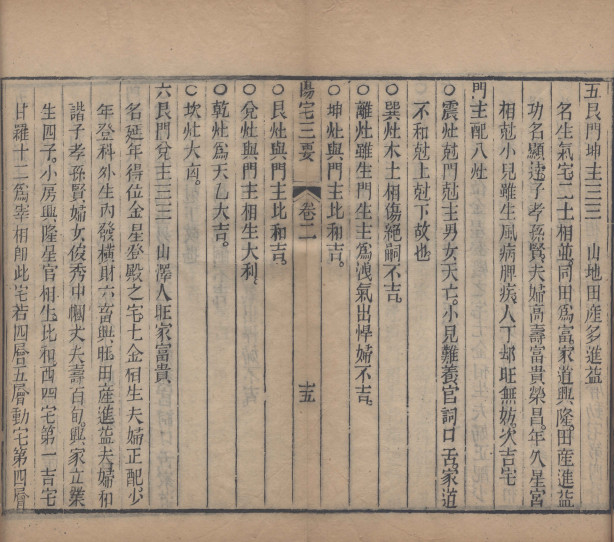 五艮門坤主三三　山地田產多進益
名生氣宅二土相並同田爲富家道興隆田產進益
功名顯達子孝孫賢夫婦高壽富貴榮昌年久星宮
相尅小兒雖生風病脾疾人丁却旺無妨次吉宅
門主配八灶
○震灶尅門尅主男女夭亡小兒難養官詞口舌家道
不和尅上尅下故也
○巽灶木土相傷絕嗣不吉
○離灶雖生門生主爲洩氣出悍婦不吉
○坤灶與門主比和吉
陽宅三要　卷二　十五
○艮灶與門主比和吉
○兌灶與門主相生大利
○乾灶爲天乙大吉
○坎灶大凶
六艮門兌主三三　山澤人旺家富貴
名延年得位金星登殿之宅七金相生夫婦正配少
年登科外生內發橫財六畜興旺田產進益夫婦和
諧子孝孫賢婦女俊秀巾幗丈夫壽百旬興家立業
生四子小房興隆星宮相生比和西四宅第一吉宅
甘羅十二爲宰相即此宅若四層五層動宅第四層